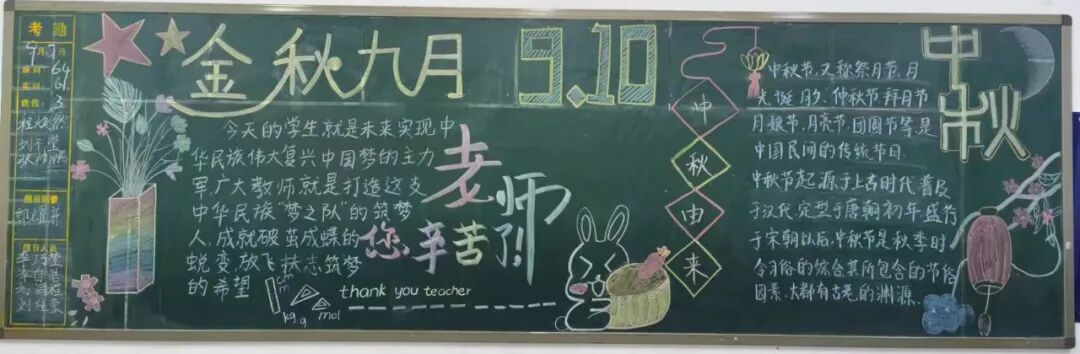 考勤
9月9日
应到 64
实到 61
请假 3
金秋九月
9.10
今天的学生就是未来实现中
华民族伟大复兴中国梦的主力
军广大教师就是打造这支
中华民族"梦之队"的筑梦
人,成就破茧成蝶的
蜕变放飞扶志筑梦
的希望
老师
您辛苦了!
thank you teacher
kg g mol
中秋由来
中秋
中秋节,又称祭月节,月
光诞 月夕 仲秋节 拜月节
月娘节、月亮节、团圆节等是
中国民间的传统节日.
中秋节起源于上古时代,普及
于汉代,定型于唐朝初年,盛行
于宋朝以后,中秋节是秋季时
令习俗的综合其所包含的节俗
因素,大都有古老的渊源.
值日班委
值日人员